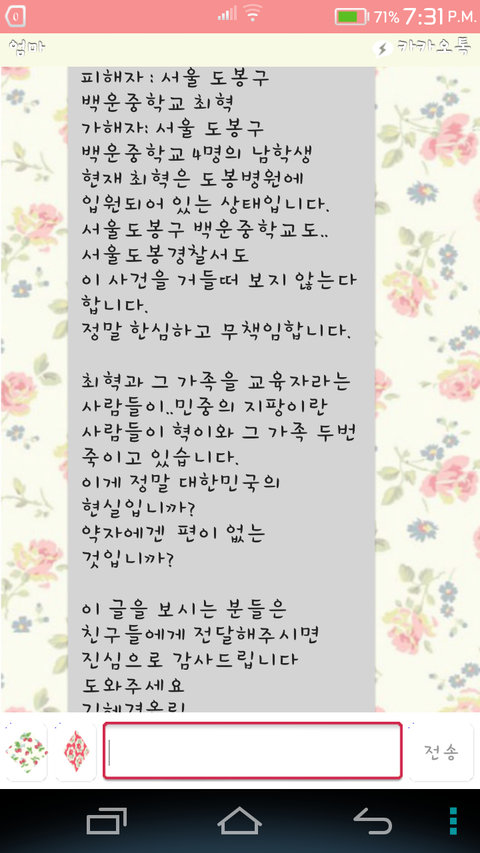 71% 7:31 P.M.
엄마
카카오톡
피해자 : 서울 도봉구
백운중학교 최혁
가해자: 서울 도봉구
백운중학교 4명의 남학생
현재 최혁은 도봉병원에
입원되어 있는 상태입니다.
서울도봉구 백운중학교도..
서울도봉경찰서도
이 사건을 거들떠 보지 않는다
합니다.
정말 한심하고 무책임합니다.
최혁과 그 가족을 교육자라는
사람들이..민중의 지팡이란
사람들이 혁이와 그 가족 두번
죽이고 있습니다.
이게 정말 대한민국의
현실입니까?
약자에겐 편이 없는
것입니까?
이 글을 보시는 분들은
친구들에게 전달해주시면
진심으로 감사드립니다
도와주세요
전송